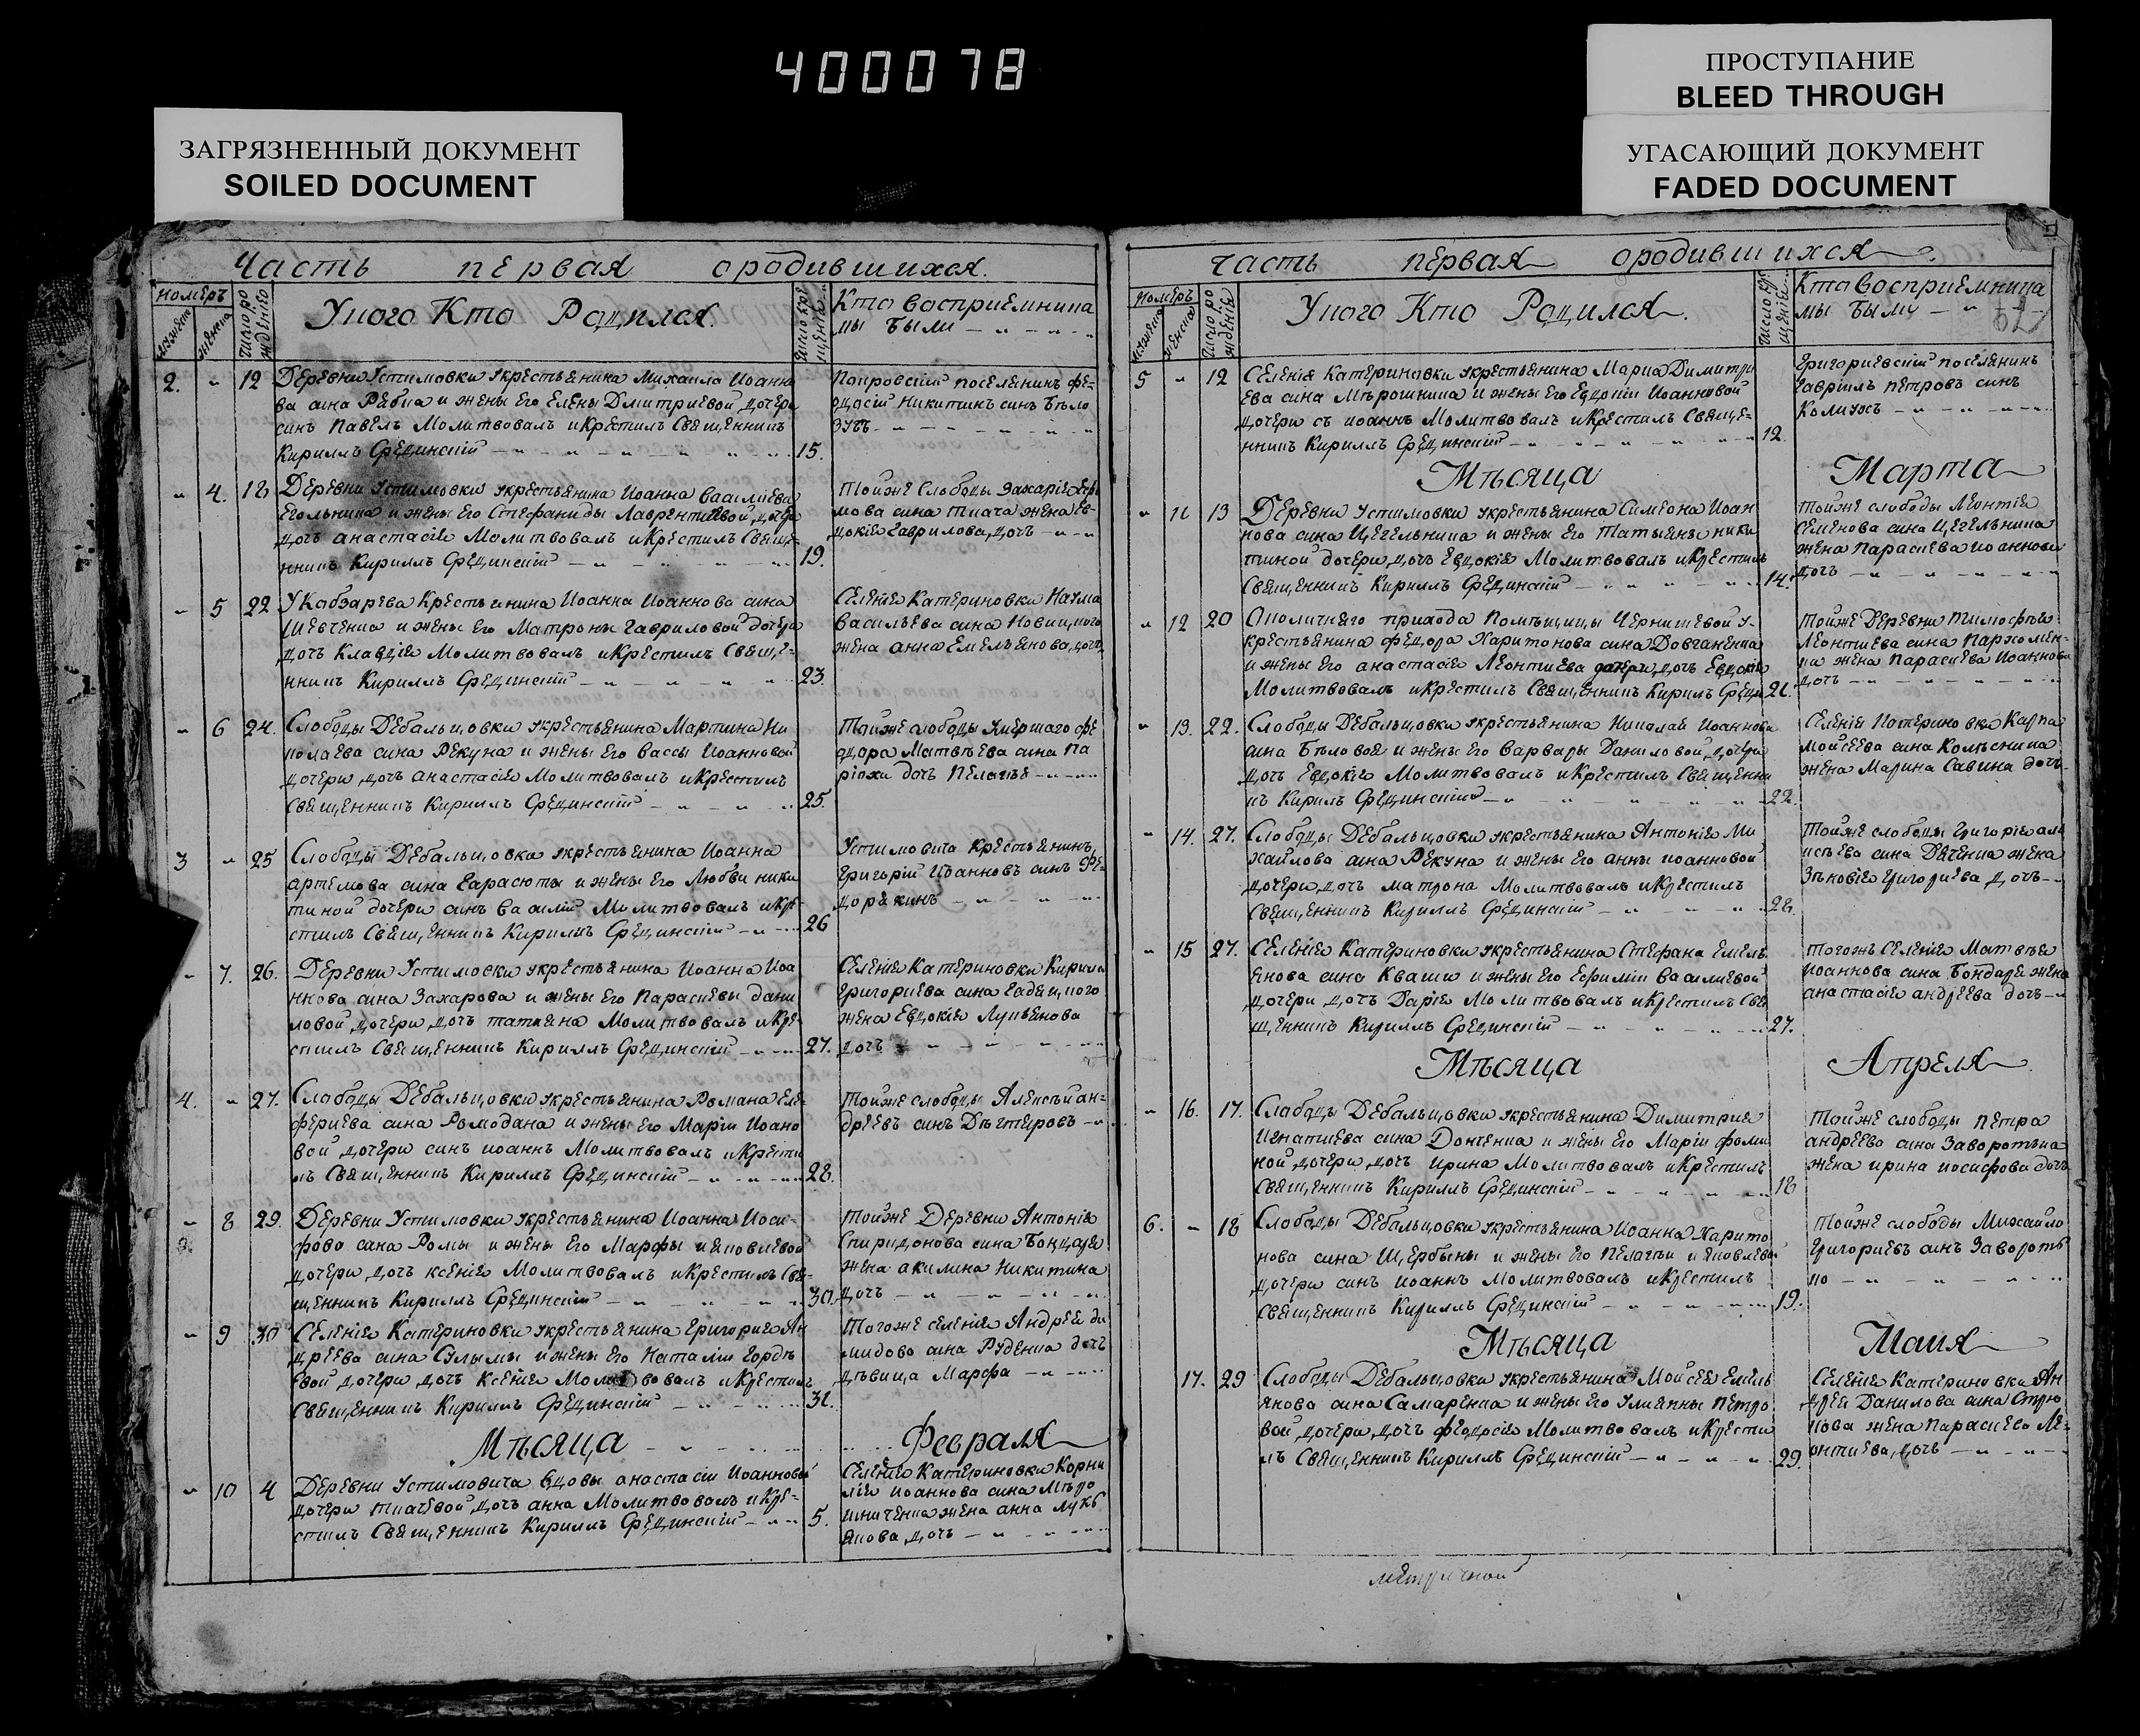 400078
ПРОСТУПАНИЕ
BLEED THROUGH
ЗАГРЯЗНЕННЫЙ ДОКУМЕНТ
SOILED DOCUMENT
УГАСАЮЩИЙ ДОКУМЕНТ
FADED DOCUMENT
Часть первая ородившихся.
номеръ
мужеска
женска
Число ро
жденїя
Уного Кто Родился.
Число кре
щенїя
Кто восприемника
мы были
2. 12 Деревни Устимовки укрестьянина Михаила Иоанно
ва сина Рябка и жены Его Елены Дмитриевой дочери
синъ Павелъ Молитвовалъ икрестилъ Священникъ
Кириллъ Срединскїй 15.
Покровскїй поселенинъ фе-
одосїй Никитинъ синъ Бѣло
зубъ
4. 18 Деревни Устимовки укрестьянина Иоанна Василїева
Егольника и жены Его Стефаниды Лаврентїевой дочери
дочь анастасїя Молитвовалъ икрестилъ Свяще-
нникъ Кириллъ Срединскїй 19.
Тойже Слободы Захарїя
мова сина Ткача жена Ев-
докїя Гаврилова дочь
5 22 У Кобзарева Крестьянина Иоанна Иоаннова сина
Шевченка и жены Его Матроны Гавриловой дочери
дочь Клавдїя Молитвовалъ икрестилъ Свяще-
нникъ Кириллъ Срединскїй 23.
Селенїя Катериновки Наума
Васильева сина Новицкого
жена анна Емельянова дочь
6 24. Слободы Дебальцовки укрестьянина Мартина Ни
колаева сина Рекуна и жены Его Вассы Иоанновой
дочери дочь анастасїя Молитвовалъ икрестилъ
Священникъ Кириллъ Срединскїй 25.
Тойже слободы умершаго фе
одора Матвѣева сина Па
рїохи дочь Пелагѣя
3 25 Слободы Дебальцовки укрестьянина Иоанна
артемова сина Гарасюты и жены Его Любви ники
тиной дочери синъ василїй Молитвовалъ икре
стилъ Священникъ Кириллъ Срединскїй 26
Устимовича крестьянинъ
Григорїй Иоанновъ синъ Фе-
дорякинъ
7. 26. Деревни Устимовки укрестьянина Иоанна Иоа
ннова сина Захарова и жены Его Параскевы дани
ловой дочери дочь татїяна Молитвовалъ икре
стилъ Священникъ Кириллъ Срединскїй 27.
Селенїя Катериновки Кирила
Григорїева сина Гадицкого
жена Евдокїя Лукьянова
дочь
4. 27. Слободы Дебальцовки укрестьянина Романа Еле-
ферїева сина Ромодана и жены Его Марїи Иоано
вой дочери синъ иоаннъ Молитвовалъ икрести
лъ Священникъ Кириллъ Срединскїй 28.
Тойже слободы Алексѣй ан-
дреевъ синъ Дѣгтяровъ
8 29. Деревни Устимовки укрестьянина Иоанна Иоси-
фова сина Ромы и жены Его Марфы иаковлевой
дочери дочь ксенїя Молитвовалъ икрестилъ Свя-
щенникъ Кириллъ Срединскїй 30.
Тойже Деревни Антонїя
Спиридонова сина Бондаря
жена акилина Никитина
дочь
9 30 Селенїя Катериновки укрестьянина Григорїя Ан
дреева сина Сулымы и жены Его Наталїи Гордѣ
евой дочери дочь Ксенїя Молитвовалъ икрестилъ
Священникъ Кириллъ Срединскїй 31.
Тогоже селенїя Андрея ди
мидова сина Руденка дочь
дѣвица Марфа
Мѣсяца Февраля
10 4 Деревни Устимовича вдовы анастасїи Иоанновой
дочери ткачевой дочь анна Молитвовалъ икре-
стилъ Священникъ Кириллъ Срединскїй 5.
Селенїя Катериновки Корни
лїя иоаннова сина Мѣро
шниченка жена анна Лукь
янова дочь
Часть первая ородившихся.
номеръ
мужеска
женска
Число ро
жденїя
Уного Кто Родился.
Число кре
щенїя
Кто восприемника
мы были
5 12 Селенїя Катериновки укрестьянина Марка Димитри
ева сина Мѣрошника и жены Его Евдокїи Иоанновой
дочери съ иоаннъ Молитвовалъ икрестилъ Свяще-
нникъ Кириллъ Срединскїй 12.
Григориевскїй поселенинъ
Гаврїилъ петровъ синъ
Калиухъ
Мѣсяца Марта
11 13 Деревни Устимовки укрестьянина Симеона Иоан
нова сина Цегельника и жены Его Татьяны ники
тиной дочери дочь Евдокїя Молитвовалъ икрестилъ
Священникъ Кириллъ Срединскїй 14.
Тойже слободы Леонтїя
Семенова сина Цегельника
жена Параскева иоаннова
дочь
12 20 Околичнего прихода Помѣщицы Чернишевой у-
крестьянина федора Харитонова сина Довганенка
и жены Его анастасїя Леонтиева дочери дочь Евдокїя
Молитвовалъ икрестилъ Священникъ Кирилъ Среди 21.
Тойже Деревни тимофѣя
Леонтиева сина Пархомен-
ка жена Параскева Иоаннова
дочь
13. 22. Слободы Дебальцовки укрестьянина Николая Иоаннова
сина Бѣловоя и жены Его Варвары Даниловой дочери
дочь Евдокїя Молитвовалъ икрестилъ Священни
къ Кирилъ Срединскїй 22.
Селенїя Катериновки Карпа
Мойсеева сина Колѣсника
жена Марина Савина дочь
14. 27. Слободы Дебальцовки укрестьянина Антонїя Ми
хайлова сина Рекуна и жены Его анны иоанновой
дочери дочь матрона Молитвовалъ икрестилъ
Священникъ Кириллъ Срединскїй 28.
Тойже слободы Григорїя але
ксѣева сина Дяченка жена
Зѣновїя Григорїева дочь
15 27. Селенїя Катериновки укрестьянина Стефана Емель
янова сина Кваши и жены Его Ефимїи Василиевой
дочери дочь Дарїя Молитвовалъ икрестилъ Свя
щенникъ Кириллъ Срединскїй 27.
Тогожъ Селенїя Матвѣя
Иоаннова сина Бондаря жена
анастасїя андреева дочь
Мѣсяца Апреля
16. 17. Слободы Дебальцовки укрестьянина Димитрия
Игнатиева сина Донченка и жены Его Марїи фоми
ной дочери дочь ирина Молитвовалъ икрестилъ
Священникъ Кириллъ Срединскїй 18
Тойже слободы Петра
андреева сина Заворотька
жена ирина иосифова дочь
6. 18 Слободы Дебальцовки укрестьянина Иоанна Харито
нова сина Щербыны и жены Его Пелагѣи иаковлевой
дочери синъ иоаннъ Молитвовалъ икрестилъ
Священникъ Кириллъ Срединскїй 19.
Тойже слободы Михайло
Григориевъ синъ Заворотъ
ко
Мѣсяца Маия
17. 29 Слободы Дебальцовки укрестьянина Мойсея Емель
янова сина Самаренка и жены Его Улияны Петро
вой дочери дочь феодосїя Молитвовалъ икрести
лъ Священникъ Кириллъ Срединскїй 29.
Селенїя Катериновки Ан
дрея Данилова сина Стрю
кова жена Параскева Ле-
онтиева дочь